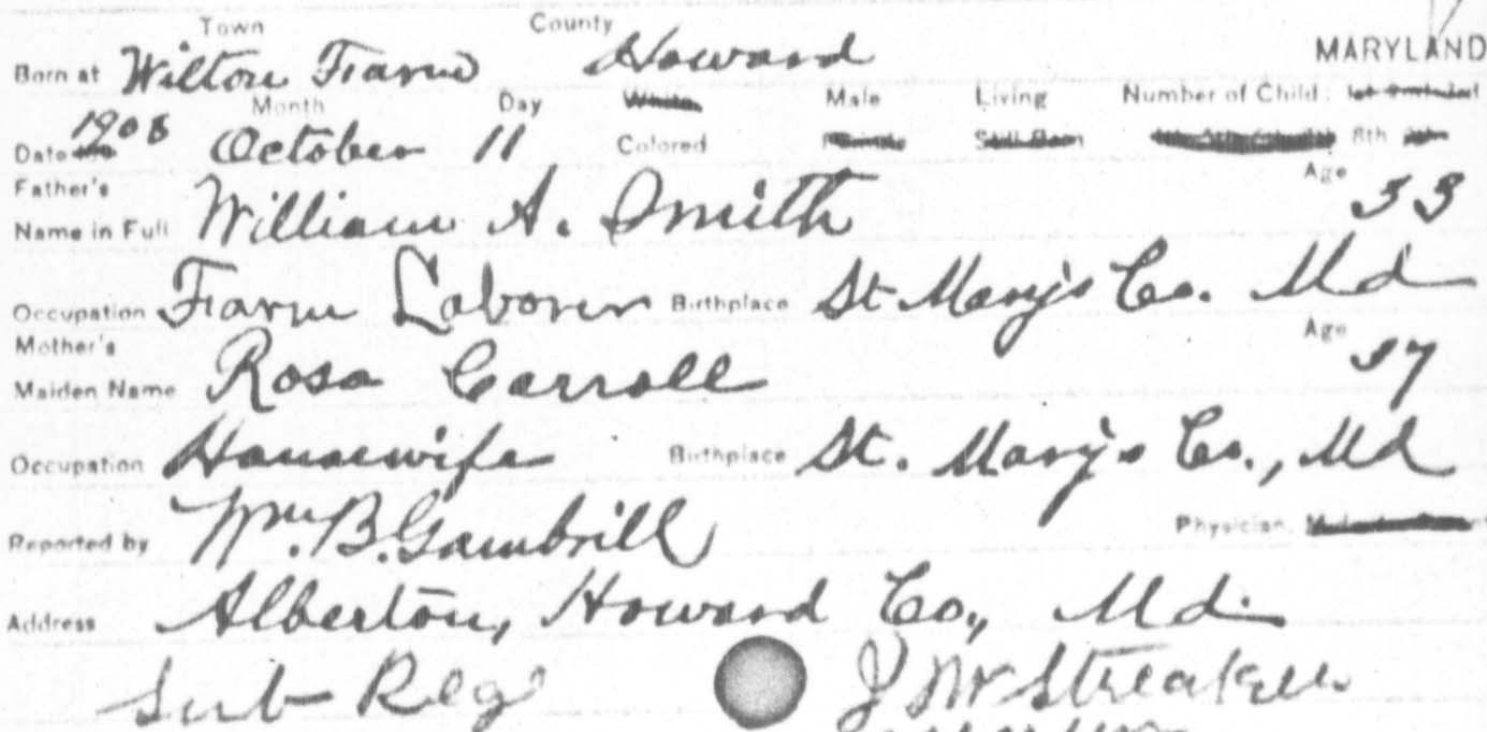 Town County
Born at Wilton Farm Howard MARYLAND
Month Day White Male Living Number of Child:
Date 1908 October 11 Colored Female Still Born 8th
Father's Age
Name in Full William A. Smith 33
Occupation Farm Laborer Birthplace St Mary's Co. Md
Mother's Age
Maiden Name Rosa Carroll 37
Occupation Housewife Birthplace St. Mary's Co., Md
Reported by Wm. B. Gambrill Physician,
Address Alberton, Howard Co., Md.
Sub Reg